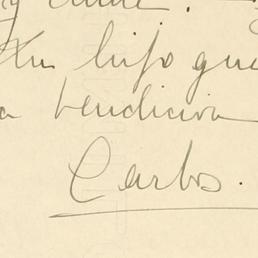 Tu hijo que
a bendicion
Carlos.